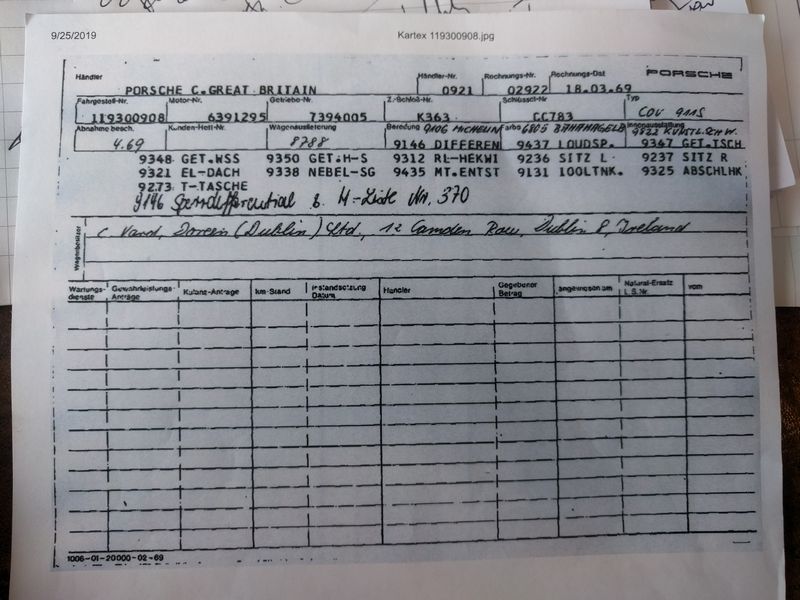 9/25/2019 Kartex 119300908.jpg
Händler Händler-Nr. Rechnungs-Nr. Rechnungs-Dat PORSCHE
PORSCHE C.GREAT BRITAIN 0921 02922 18.03.69
Fahrgestell-Nr. Motor-Nr. Getriebe-Nr. Z.-Schloß-Nr. Schlüssel-Nr. Typ
119300908 6391295 7394005 K363 CC783 COU 911S
Abnahme besch. Kunden-Heft-Nr. Wagenauslieferung Bereifung 9106 MICHELIN Farbe 6805 BAHAMAGELB Innenausstattung
4.69 8788 9146 DIFFEREN 9437 LOUDSP. 9367 GET.TSCH
9348 GET.WSS 9350 GET.H-S 9312 RL-HEKWI 9236 SITZ L 9237 SITZ R
9321 EL-DACH 9338 NEBEL-SG 9435 MT.ENTST 9131 100LTNK. 9325 ABSCHLHK
9273 T-TASCHE
9146 Sperrdifferential s. M-Liste Nr. 370
Wagenbesitzer
C. Vard, (Dublin) Ltd., 12 Camden Row, Dublin 8, Ireland
Wartungs-dienste Gewährleistungs-Anträge Kulanz-Anträge km-Stand Instandsetzung Datum Händler Gegebener Betrag angewiesen am Natural-Ersatz L.S.Nr. vom
1006-01-20000-02-69